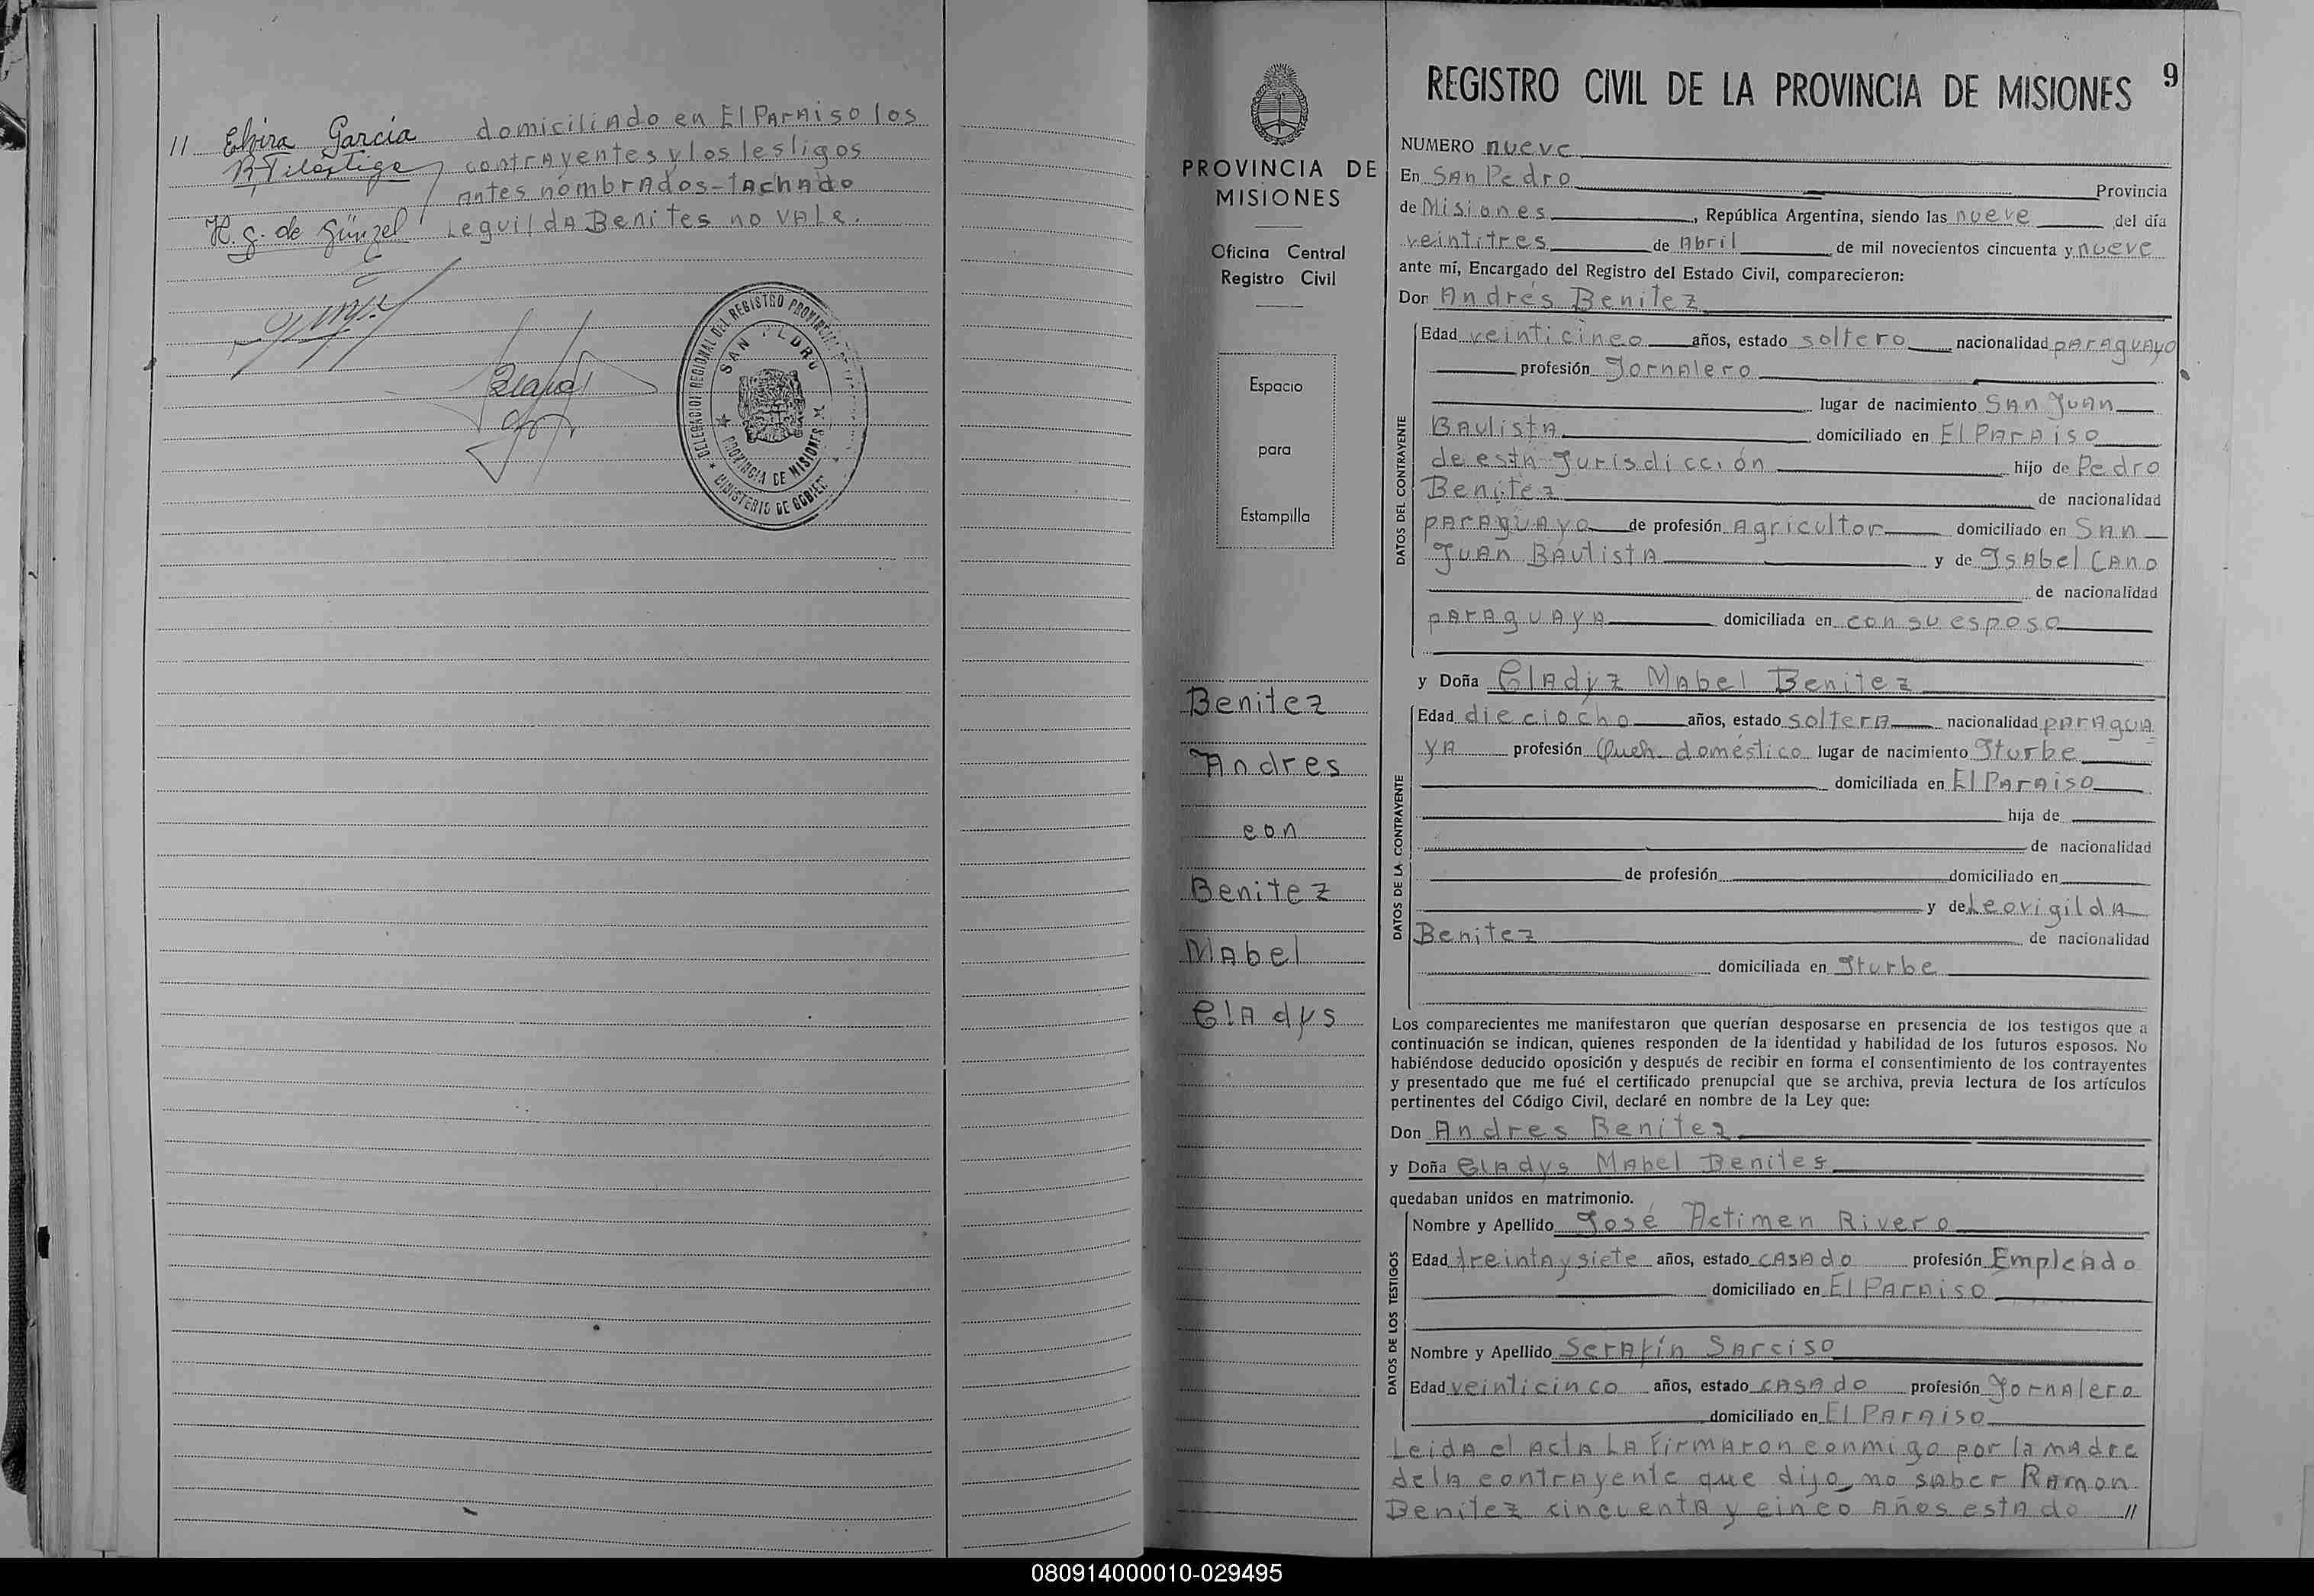 // Elvira Garcia domiciliado en El Paraiso los
contrayentes y los testigos
antes nombrados - tachado
H. g. de Günzel Leguilda Benites no vale.
DELEGACION REGIONAL DEL REGISTRO PROVINCIAL DE
SAN PEDRO
PROVINCIA DE MISIONES
MINISTERIO DE GOBIER
PROVINCIA DE
MISIONES
Oficina Central
Registro Civil
Espacio
para
Estampilla
Benitez
Andres
con
Benitez
Mabel
Gladys
REGISTRO CIVIL DE LA PROVINCIA DE MISIONES 9
NUMERO nueve
En San Pedro Provincia
de Misiones, República Argentina, siendo las nueve del día
veintitres de Abril de mil novecientos cincuenta y nueve
ante mí, Encargado del Registro del Estado Civil, comparecieron:
Don Andrés Benitez
DATOS DEL CONTRAYENTE
Edad veinticinco años, estado soltero nacionalidad paraguayo
profesión Jornalero
lugar de nacimiento San Juan
Bautista domiciliado en El Paraiso
de esta Jurisdicción hijo de Pedro
Benitez de nacionalidad
paraguayo de profesión Agricultor domiciliado en San
Juan Bautista y de Isabel Cano
de nacionalidad
paraguaya domiciliada en con su esposo
y Doña Gladyz Mabel Benitez
DATOS DE LA CONTRAYENTE
Edad dieciocho años, estado soltera nacionalidad paragua
ya profesión Queh. doméstico lugar de nacimiento Iturbe
domiciliada en El Paraiso
hija de
de nacionalidad
de profesión domiciliado en
y de Leovigilda
Benitez de nacionalidad
domiciliada en Iturbe
Los comparecientes me manifestaron que querían desposarse en presencia de los testigos que a
continuación se indican, quienes responden de la identidad y habilidad de los futuros esposos. No
habiéndose deducido oposición y después de recibir en forma el consentimiento de los contrayentes
y presentado que me fué el certificado prenupcial que se archiva, previa lectura de los artículos
pertinentes del Código Civil, declaré en nombre de la Ley que:
Don Andres Benitez
y Doña Gladys Mabel Benites
quedaban unidos en matrimonio.
DATOS DE LOS TESTIGOS
Nombre y Apellido José Actimen Rivero
Edad treinta y siete años, estado casado profesión Empleado
domiciliado en El Paraiso
Nombre y Apellido Serafín Sarciso
Edad veinticinco años, estado casado profesión Jornalero
domiciliado en El Paraiso
Leida el acta la firmaron conmigo por la madre
de la contrayente que dijo no saber Ramon
Benitez cincuenta y cinco años estado //
080914000010-029495